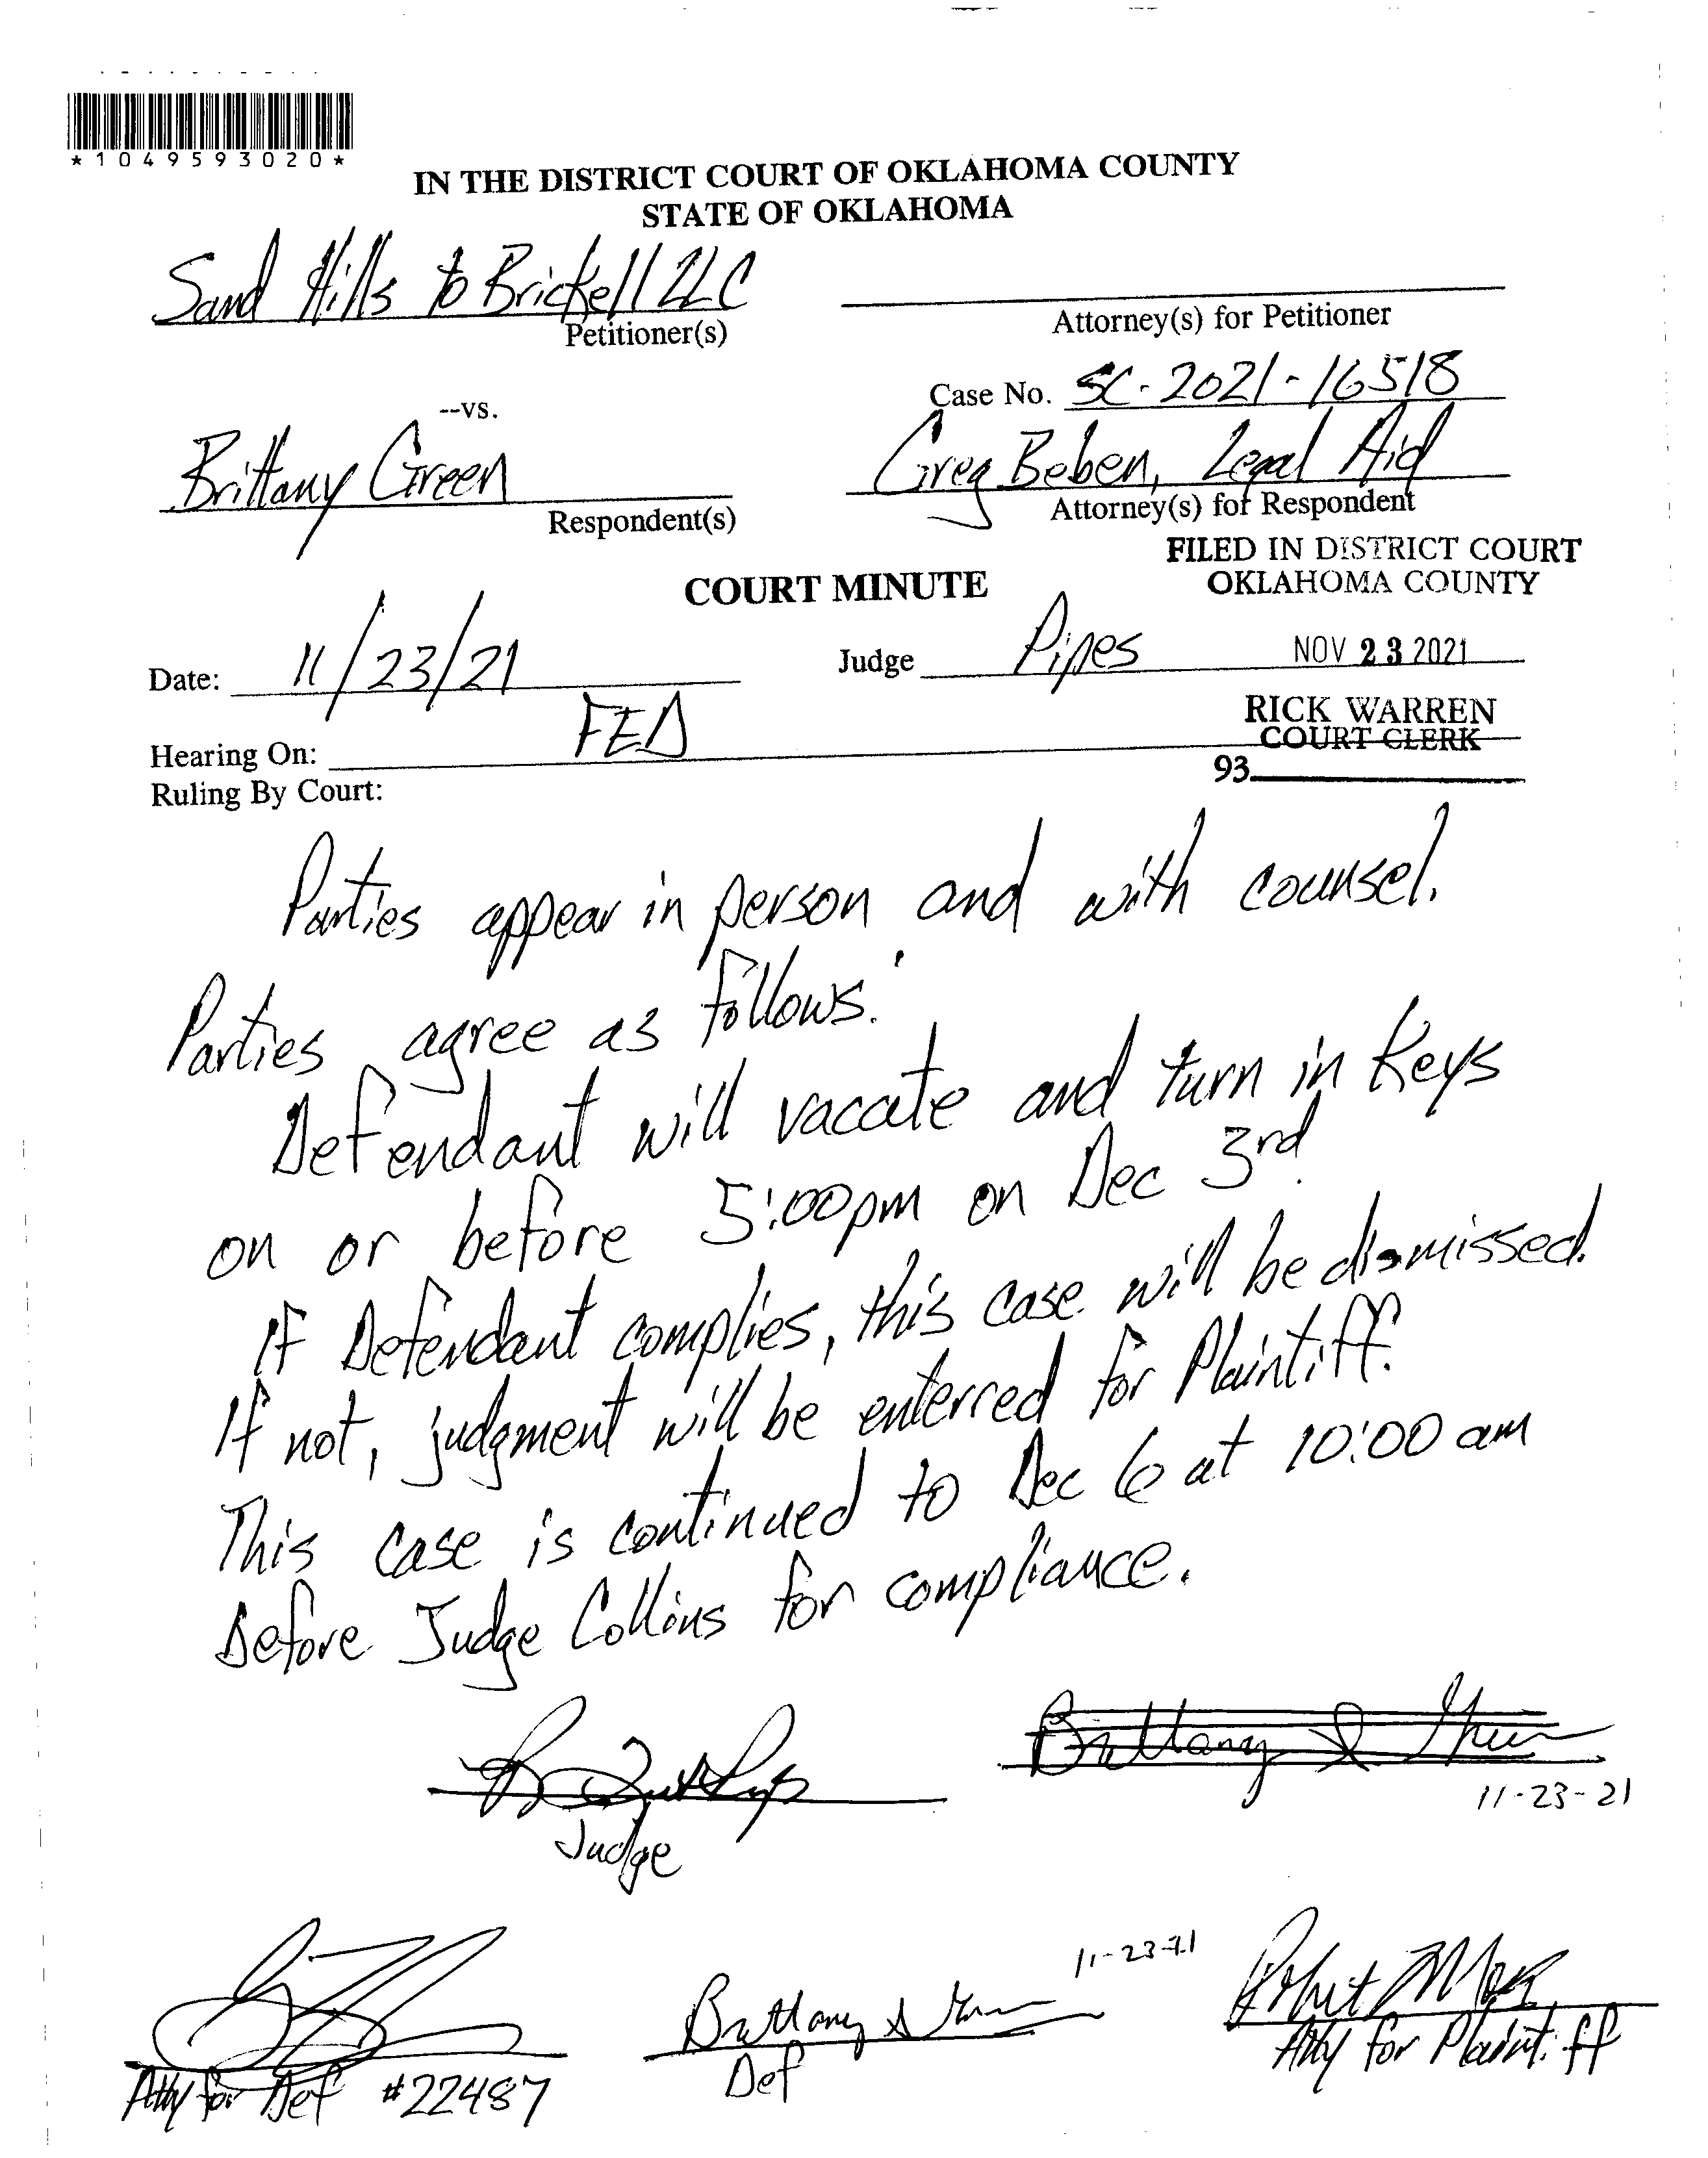 *1049593020*
IN THE DISTRICT COURT OF OKLAHOMA COUNTY
STATE OF OKLAHOMA
Sand Hills to Brickell LLC
Petitioner(s)
Attorney(s) for Petitioner
--vs.
Case No. SC-2021-16518
Brittany Green
Respondent(s)
Greg Beben, Legal Aid
Attorney(s) for Respondent
FILED IN DISTRICT COURT
OKLAHOMA COUNTY
COURT MINUTE
Date: 11/23/21
Judge Pipes
NOV 23 2021
Hearing On: FED
RICK WARREN
COURT CLERK
93
Ruling By Court:
Parties appear in person and with counsel.
Parties agree as follows:
Defendant will vacate and turn in keys
on or before 5:00pm on Dec 3rd.
If Defendant complies, this case will be dismissed.
If not, judgment will be enterred for Plaintiff.
This case is continued to Dec 6 at 10:00 am
Before Judge Collins for compliance.
Brittany S Green
11-23-21
Judge
11-23-21
Brittany S Green
Def
Atty for Def #22487
Atty for Plaintiff